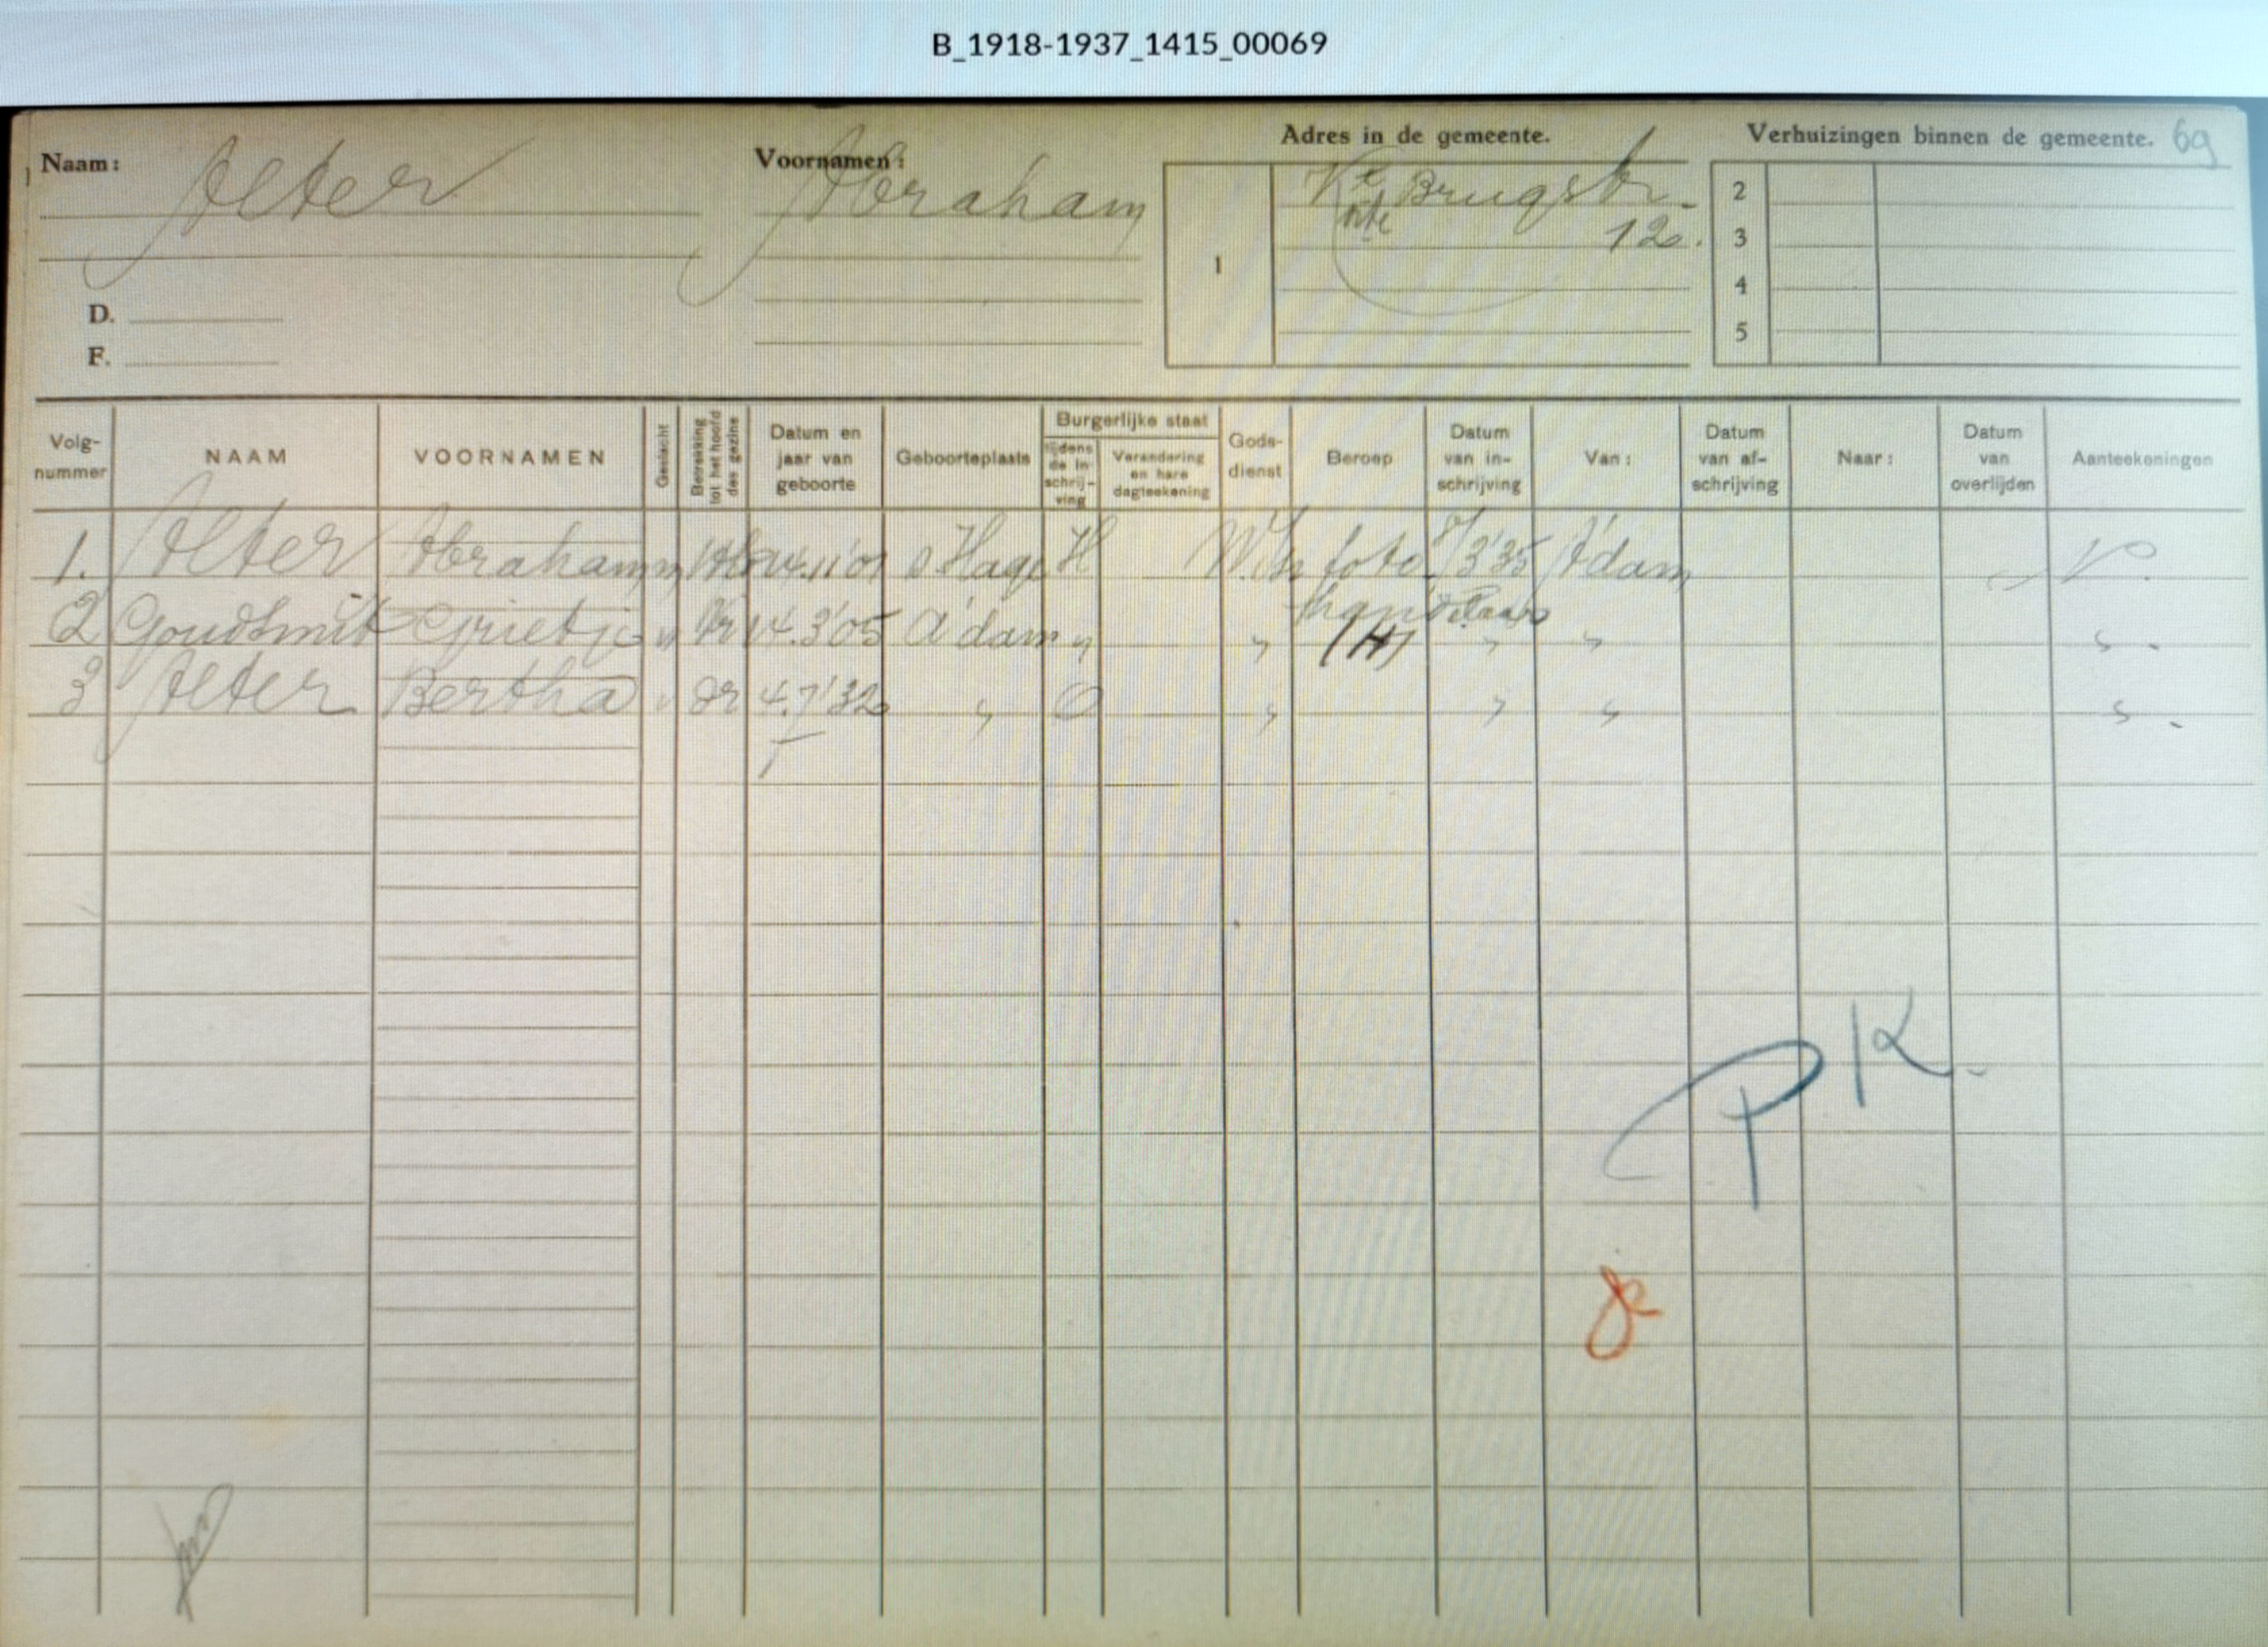 B_1918-1937_1415_00069
Naam: Alter
Voornamen: Abraham
Adres in de gemeente.
1 Kte Brugstr.
12.
Verhuizingen binnen de gemeente. 69
2
3
4
5
D.
F.
Volg-nummer NAAM VOORNAMEN Geslacht Betrekking tot het hoofd des gezins Datum en jaar van geboorte Geboorteplaats Burgerlijke staat tijdens de in-schrij-ving Verandering en hare dagteekening Gods-dienst Beroep Datum van in-schrijving Van: Datum van af-schrijving Naar: Datum van overlijden Aanteekeningen
1. Alter Abraham m 14.11'01 s Hage H foto /3'35 A'dam N.
handelaar
2 Goudsmit Grietje v Vr 14.3'05 A'dam " " (H) " " "
3 Alter Bertha v dr 4.7'32 " O " " " "
PK.